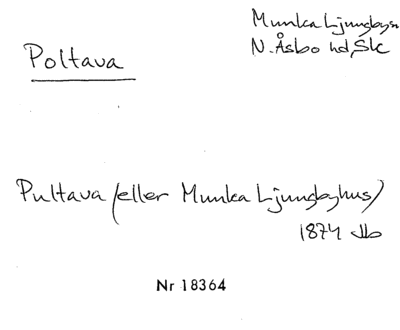 Poltava
Munka Ljungby sn
N. Åsbo hd, Sk
Pultava (eller Munka Ljungbyhus)
1874 Jb
Nr 18364